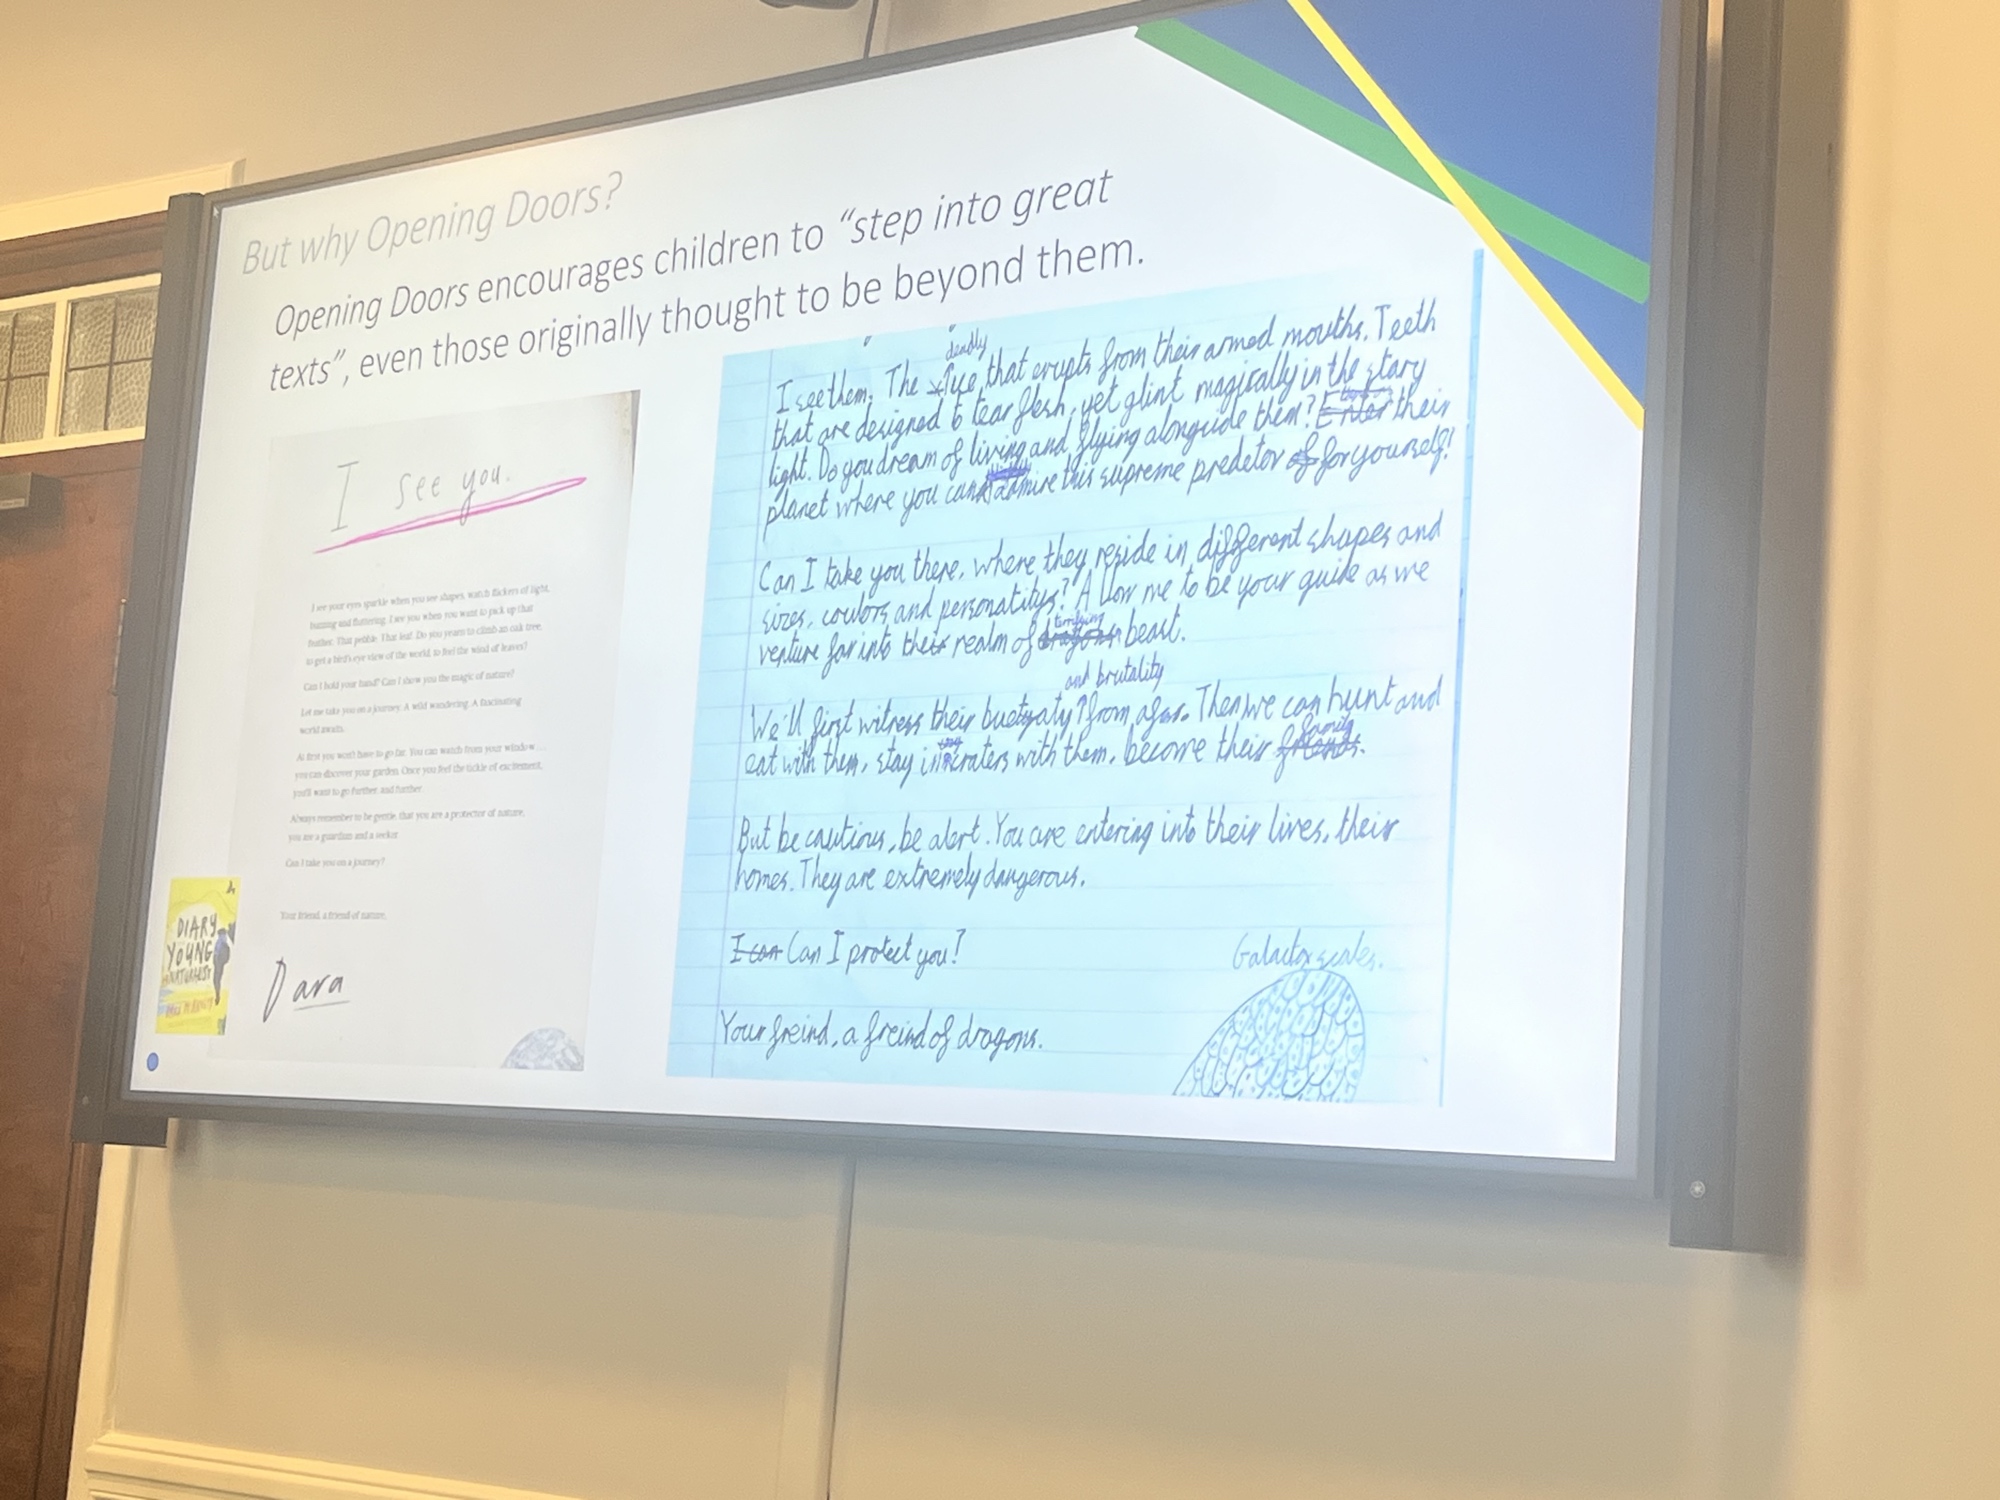 But why Opening Doors?
Opening Doors encourages children to “step into great
texts”, even those originally thought to be beyond them.
I see you.
I see your eyes sparkle when you see shapes, watch flickers of light,
buzzing and fluttering. I see you when you want to pick up that
feather. That pebble. That leaf. Do you yearn to climb an oak tree,
to get a bird's eye view of the world, to feel the wind of leaves?
Can I hold your hand? Can I show you the magic of nature?
Let me take you on a journey. A wild wandering. A fascinating
world awaits.
At first you won't have to go far. You can watch from your window...
you can discover your garden. Once you feel the tickle of excitement,
you'll want to go further and further.
Always remember to be gentle, that you are a protector of nature,
you are a guardian and a seeker.
Can I take you on a journey?
Your friend, a friend of nature,
Dara
DIARY
YOUNG
NATURALIST
deadly
I see them. The that erupts from their armed mouths. Teeth
that are designed to tear flesh, yet glint magically in the stary
light. Do you dream of living and flying alongside them? Enter their
planet where you can admire this supreme predetor of for yourself!
Can I take you there, where they reside in different shapes and
sizes, coulors and personatitys? Allow me to be your guide as we
terrifying
venture far into their realm of dragons beast.
and brutality
We'll first witness their from afar. Then we can hunt and
family
eat with them, stay in craters with them, become their friends.
But be cautious, be alert. You are entering into their lives, their
homes. They are extremely dangerous.
I can Can I protect you?
Galactox scales.
Your freind, a freind of dragons.